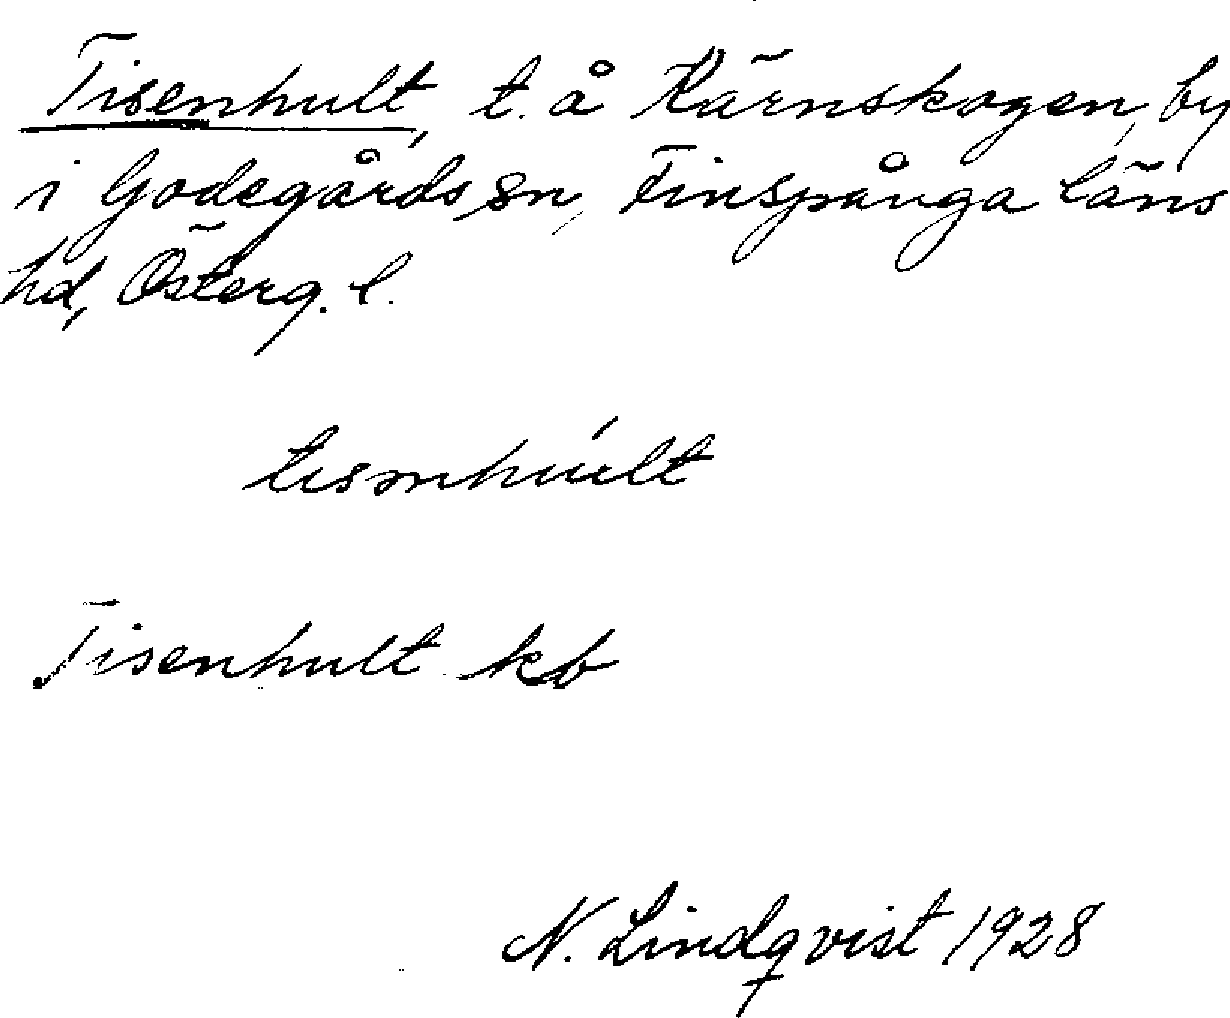 Tisenhult, t. å Kärnskogen, by
i Godegårds sn, Finspånga läns
hd, Österg. l.
tismhúlt
Tisenhult kb
N. Lindqvist 1928